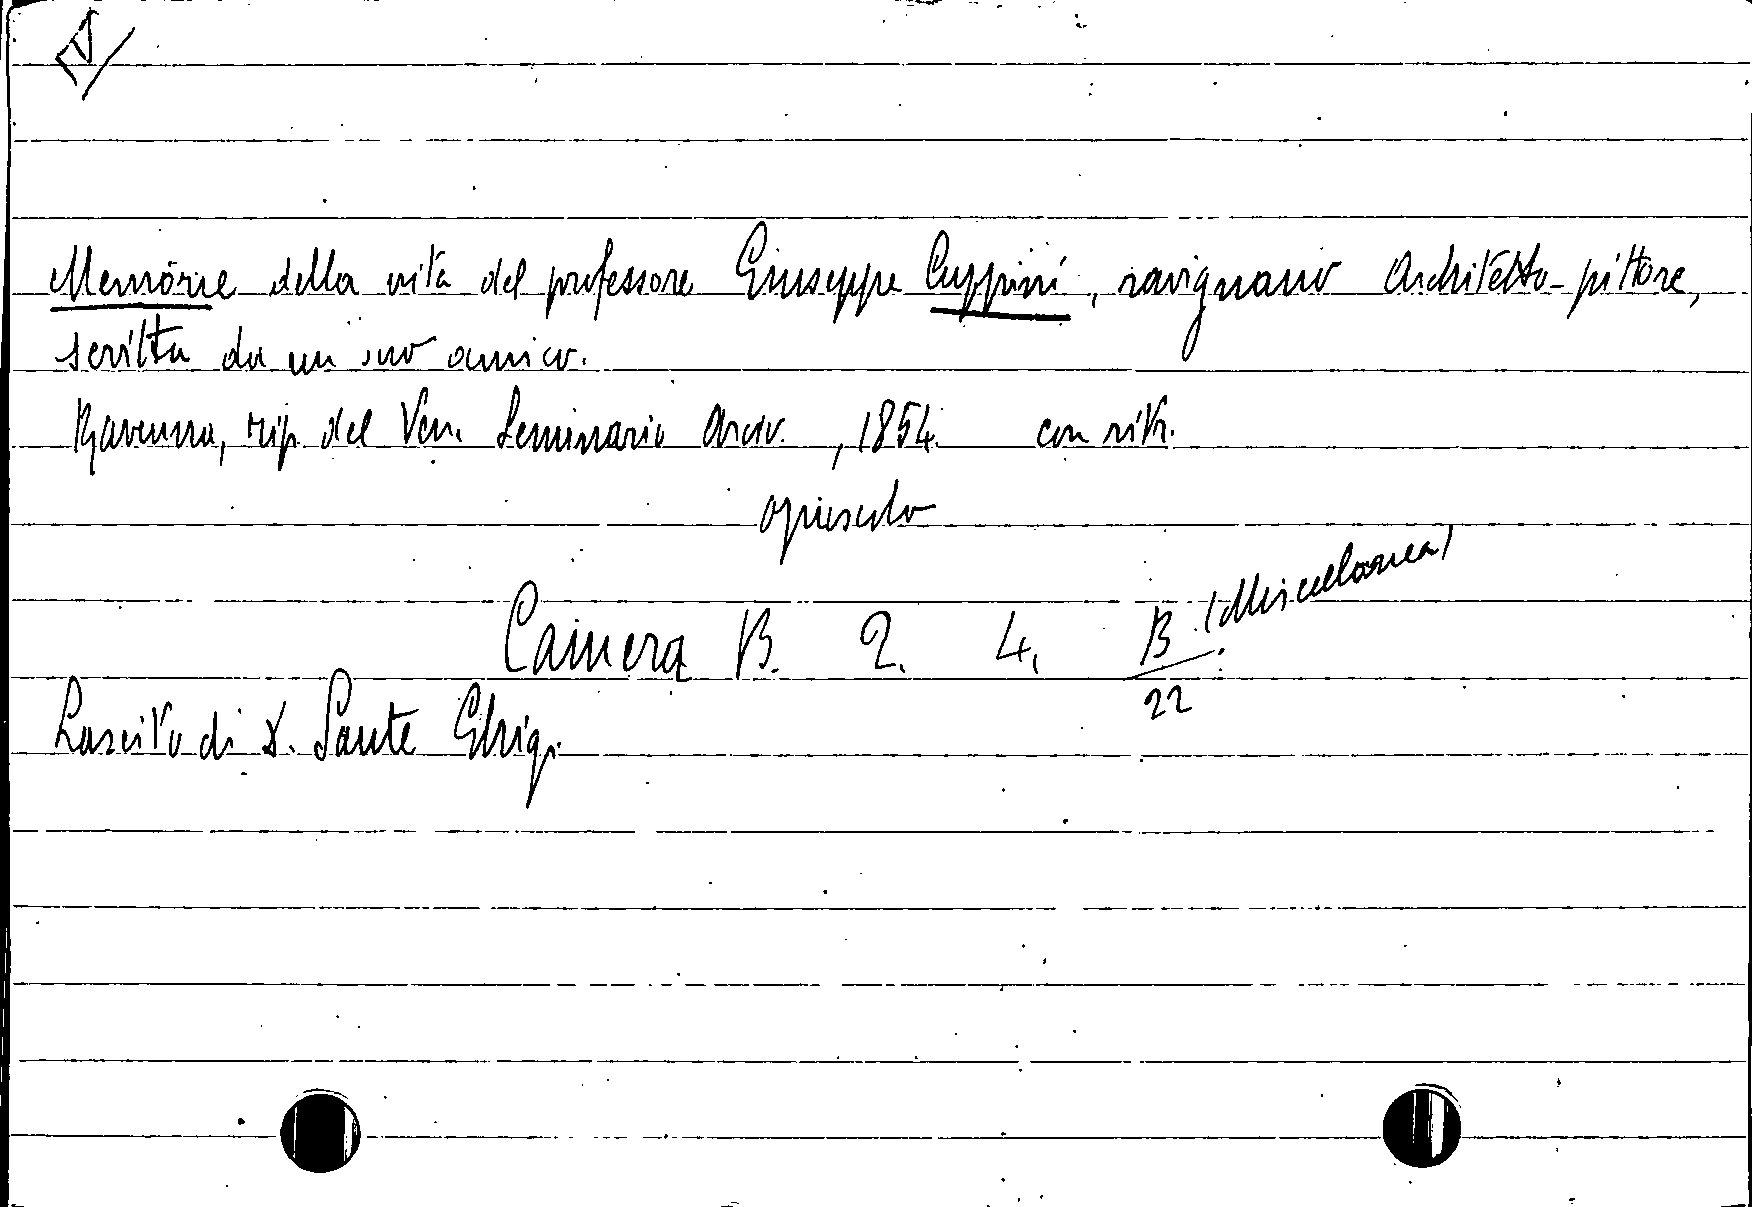 Memorie della vita del professore Giuseppe Cuppini, ravignano Architetto-pittore,
scritta da un suo amico.
Ravenna, tip. del Ven. Seminario Arciv., 1854. con ritr.
opuscolo
(Miscellanea)
Camera B. 2. 4. B/22
Lascito di d. Sante Ghigi